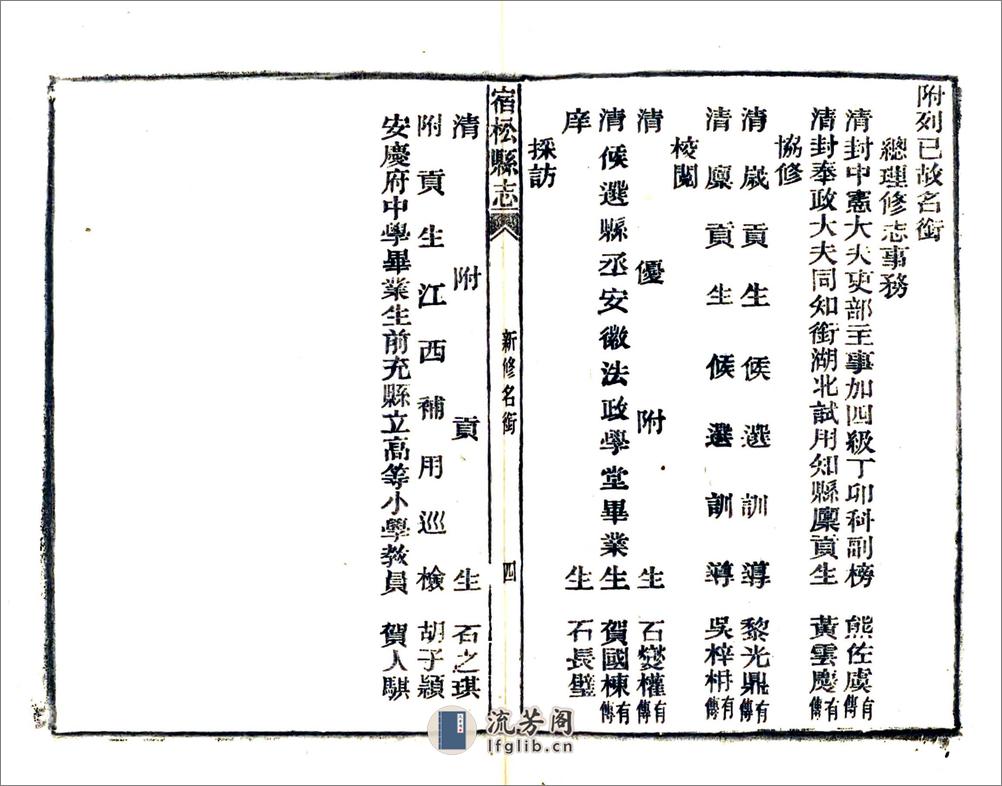 附列已故名銜
總理修志事務
清封中憲大夫吏部主事加四級丁卯科副榜 熊佐虞有傳
清封奉政大夫同知銜湖北試用知縣廩貢生 黃雲慶有傳
協修
清歲貢生候選訓導 黎光鼎有傳
清廩貢生候選訓導 吳梓枬有傳
校閱
清優附生 石燮權有傳
清候選縣丞安徽法政學堂畢業生 賀國棟有傳
庠生 石長璧
採訪
宿松縣志
新修名銜
四
清附貢生 石之琪
附貢生江西補用巡檢 胡子穎
安慶府中學畢業生前充縣立高等小學教員 賀人騏
流芳阁
lfglib.cn